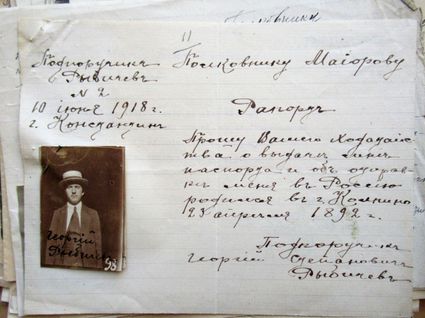 11
Подпоручик
Рыбичевъ
N 2
10 июня 1918 г.
г. Константин
Полковнику Маiорову
Рапортъ
Прошу Вашего Ходатайс
тва о выдаче мне
паспорта и об отправ
ке меня въ Россию
родился въ г.
23 апреля 1892 г.
Подпоручик
Георгій Степанович
Рыбичевъ
Георгій
98